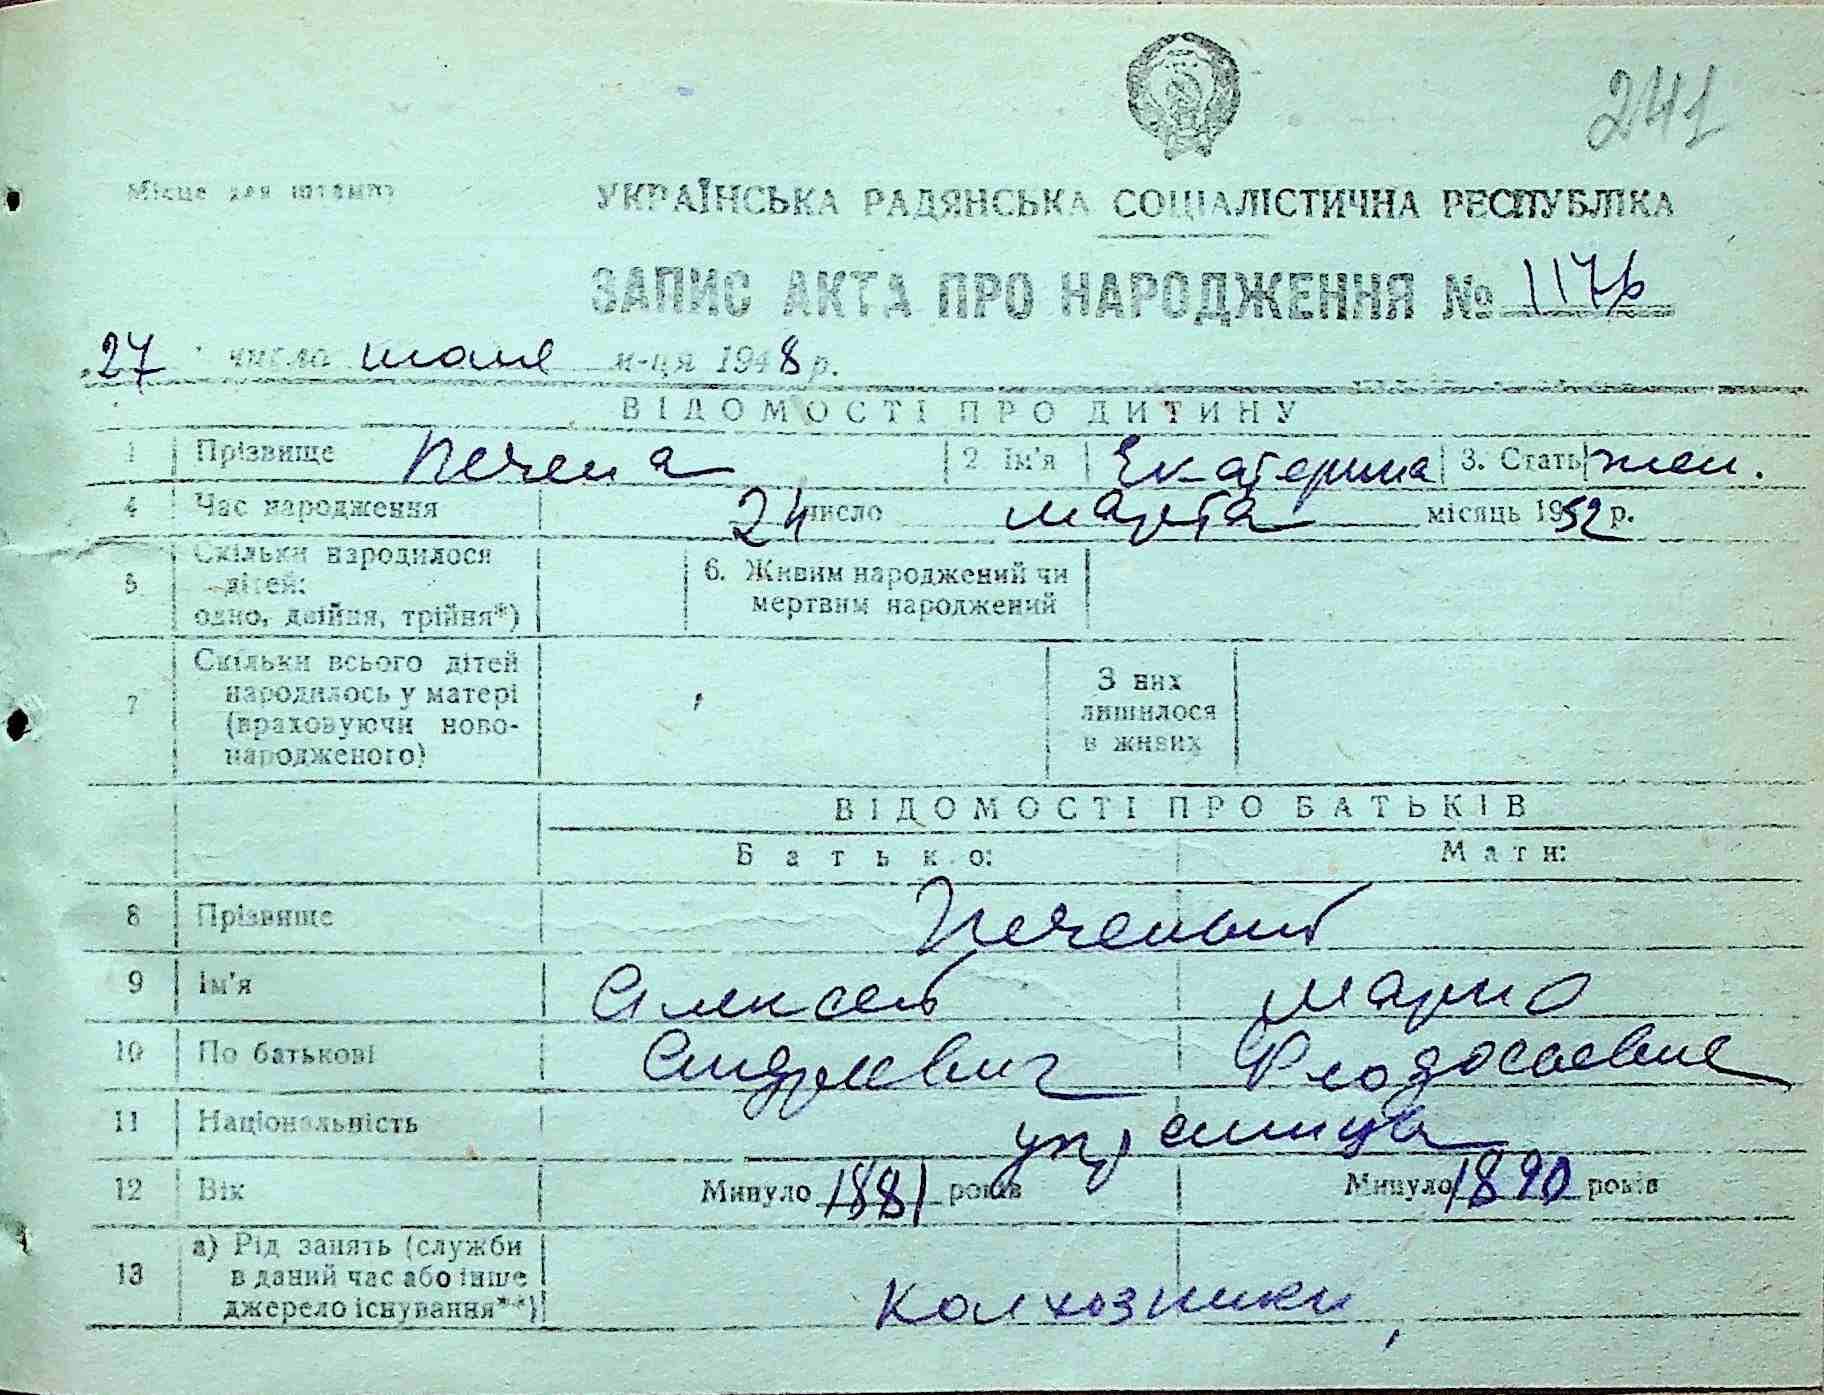 241
Місце для штампу
УКРАЇНСЬКА РАДЯНСЬКА СОЦІАЛІСТИЧНА РЕСПУБЛІКА
ЗАПИС АКТА ПРО НАРОДЖЕННЯ №
27 числа июля м-ця 1948 р.
ВІДОМОСТІ ПРО ДИТИНУ
1 Прізвище Печена 2 Ім'я Екатерина 3. Стать жен.
4 Час народження 24 число марта місяць 1952 р.
5 Скільки народилося дітей: одно, двійня, трійня*)
6. Живим народжений чи мертвим народжений
7 Скільки всього дітей народилось у матері (враховуючи новонародженого)
З них лишилося в живих
ВІДОМОСТІ ПРО БАТЬКІВ
Батько: Мати:
8 Прізвище Печеный
9 Ім'я Алексей Мария
10 По батькові Андреевич Феодосиевна
11 Національність украинцы
12 Вік Минуло 1881 років Минуло 1890 років
13 а) Рід занять (служби в даний час або інше джерело існування**) Колхозники